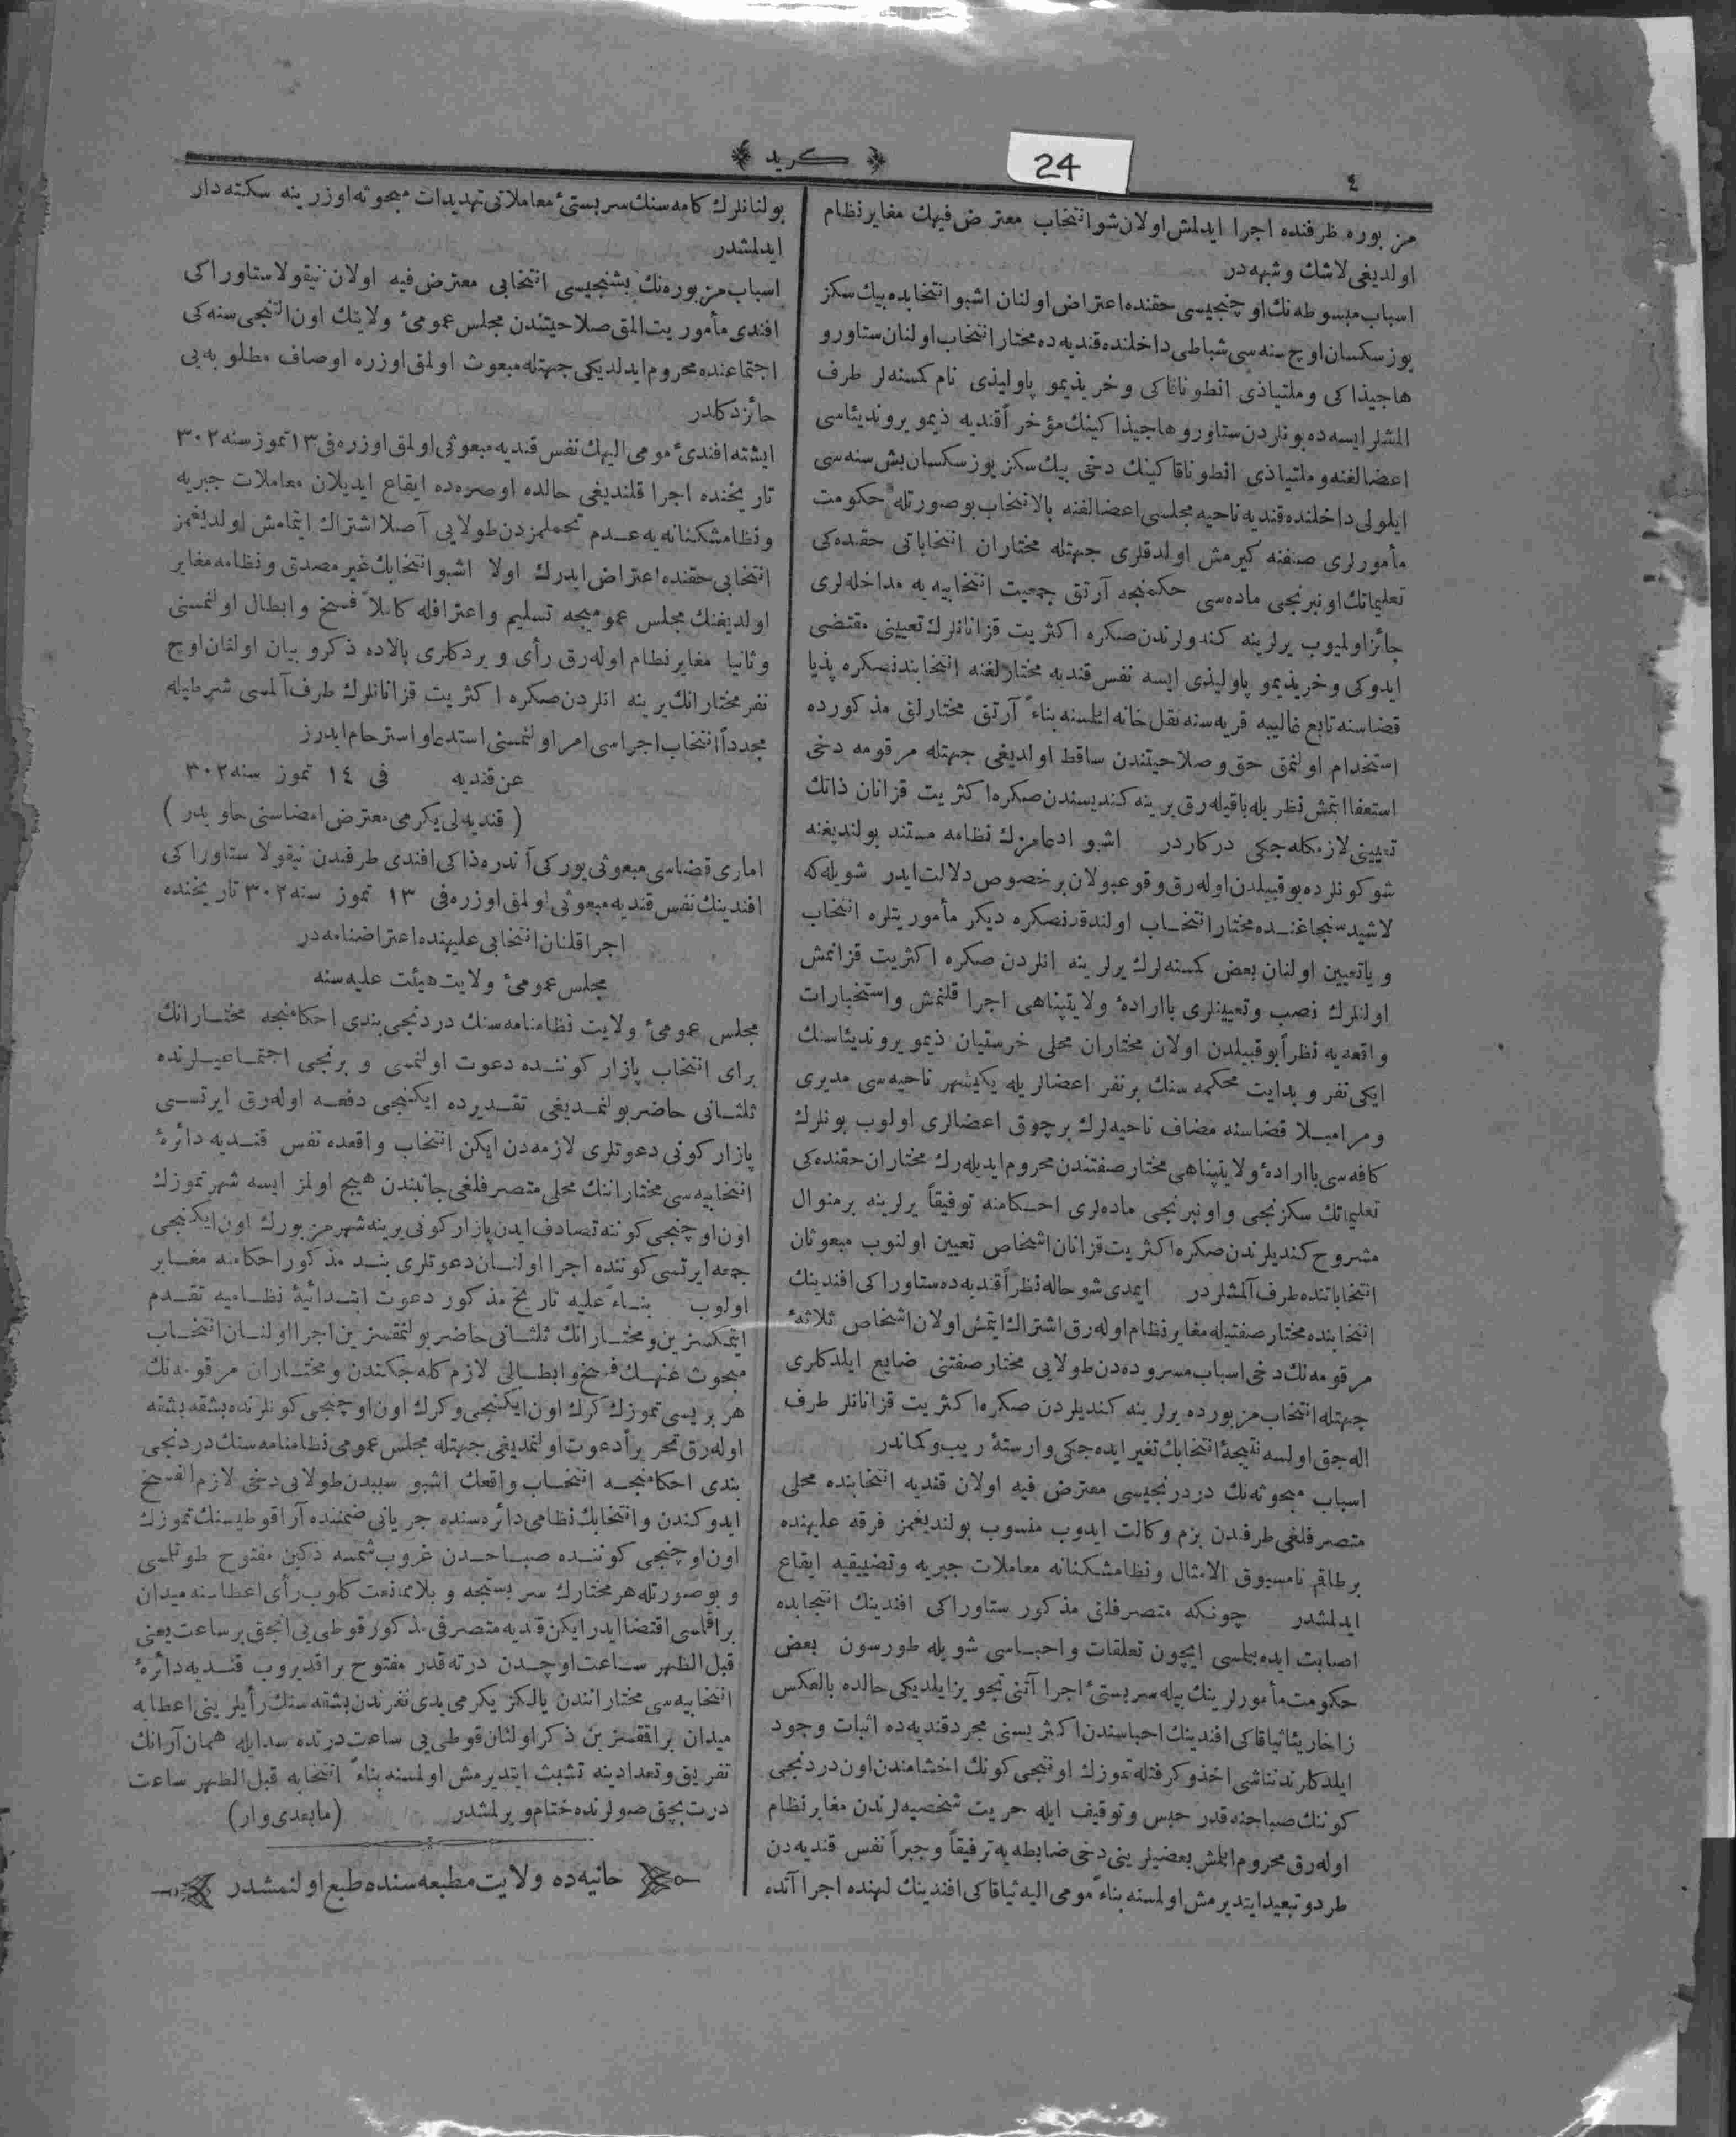 ٤
﴿ كريد ﴾
24
مزبوره ظرفنده اجرا ايدلمش اولان شو انتخاب معترض فيهك مغاير نظام
اولديغى لاشك وشبهه در
اسباب مبسوطه نك اوچنجيسى حقنده اعتراض اولنان اشبو انتخابده بيك سكز
يوز سكسان اوچ سنه سى شباطى داخلنده قنديه ده مختار انتخاب اولنان ستاورو
هاجيذاكى وملتياذى انطوناقاكى وخريذيمو پاوليذى نام كمسنه لر طرف
المشلر ايسه ده بونلردن ستاورو هاجيذاكينك مؤخراً قنديه ذيمويروندیئاسى
اعضالغنه وملتياذى انطوناقاكينك دخى بيك سكز يوز سكسان بش سنه سى
ايلولى داخلنده قنديه ناحيه مجلسى اعضالغنه بالانتخاب بو صورتله حكومت
مأمورلرى صنفنه كيرمش اولدقلرى جهتله مختاران انتخاباتى حقنده كى
تعليماتك اونبرنجى ماده سى حكمنجه آرتق جمعيت انتخابيه يه مداخله لرى
جائز اولميوب يرلرينه كندولرندن صكره اكثريت قزانانلرك تعيينى مقتضى
ايدوكى وخريذيمو پاوليذى ايسه نفس قنديه مختارلغنه انتخابندنصكره پذيا
قضاسنه تابع غاليبه قريه سنه نقل خانه ايلمسنه بناءً آرتق مختارلق مذكورده
استخدام اولنمق حق وصلاحيتندن ساقط اولديغى جهتله مرقومه دخى
استعفا ايتمش نظريله باقيله رق يرينه كنديسندن صكره اكثريت قزانان ذاتك
تعيينى لازمكله جكى دركاردر اشبو ادعامزك نظامه مستند بولنديغنه
شو كونلرده بو قبيلدن اوله رق وقوعبولان بر خصوص دلالت ايدر شويله كه
لاشيد سنجاغنده مختار انتخاب اولندقدنصكره ديكر مأموريتلره انتخاب
ويا تعيين اولنان بعض كمسنه لرك يرلرينه انلردن صكره اكثريت قزانمش
اولنلرك نصب وتعيينلرى با ارادۀ ولايتپناهى اجرا قلنمش واستخبارات
واقعه يه نظراً بو قبيلدن اولان مختاران محلى خرستيان ذيمويروندیئاسنك
ايكى نفر و بدايت محكمه سنك بر نفر اعضالريله يكيشهر ناحيه سى مديرى
ومرامبلا قضاسنه مضاف ناحيه لرك برچوق اعضالرى اولوب بونلرك
كافه سى با ارادۀ ولايتپناهى مختار صفتندن محروم ايديله رك مختاران حقنده كى
تعليماتك سكزنجى واونبرنجى ماده لرى احكامنه توفيقاً يرلرينه برمنوال
مشروح كنديلرندن صكره اكثريت قزانان اشخاص تعيين اولنوب مبعوثان
انتخاباتنده طرف آلمشلردر ايمدى شو حاله نظراً قنديه ده ستاوراكى افندينك
انتخابنده مختار صفتيله مغاير نظام اوله رق اشتراك ايتمش اولان اشخاص ثلاثۀ
مرقومه نك دخى اسباب مسروده دن طولايى مختار صفتنى ضايع ايلدكلرى
جهتله انتخاب مزبورده يرلرينه كنديلردن صكره اكثريت قزانانلر طرف
اله جق اولسه نتيجۀ انتخابك تغير ايده جكى وارستۀ ريب وكماندر
اسباب مبحوثه نك دردنجيسى معترض فيه اولان قنديه انتخابنده محلى
متصرفلغى طرفندن بزم وكالت ايدوب منسوب بولنديغمز فرقه عليهنده
برطاقم نامسبوق الامثال ونظامشكنانه معاملات جبريه وتضييقيه ايقاع
ايدلمشدر چونكه متصرفلق مذكور ستاوراكى افندينك انتخابده
اصابت ايده بيلمسى ايچون تعلقات واحباسى شويله طورسون بعض
حكومت مأمورلرينك بيله سربستئ اجرا آتنى تجويز ايلديكى حالده بالعكس
زاخاريئاثياقاكى افندينك احباسندن اكثريسنى مجرد قنديه ده اثبات وجود
ايلدكلرندنناشى اخذوكرفتله تموزك اوننجى كونك اخشامندن اون دردنجى
كوننك صباحنه قدر حبس وتوقيف ايله حريت شخصيه لرندن مغاير نظام
اوله رق محروم ايلمش بعضيلرينى دخى ضابطه يه ترفيقاً وجبراً نفس قنديه دن
طرد وتبعيد ايتديرمش اولمسنه بناءً مومى اليه ثياقاكى افندينك لهنده اجرا آتده
بولنانلرك كامه سنك سربستئ معاملاتى تهديدات مبحوثه اوزرينه سكته دار
ايدلمشدر
اسباب مزبوره نك بشنجيسى انتخابى معترض فيه اولان نيقولا ستاوراكى
افندى مأموريت المق صلاحيتندن مجلس عمومئ ولايتك اون التنجى سنه كى
اجتماعنده محروم ايدلديكى جهتله مبعوث اولمق اوزره اوصاف مطلوبه يى
حائز دكلدر
ايشته افندئ مومى اليهك نفس قنديه مبعوثى اولمق اوزره فى ١٣ تموز سنه ٣٠٢
تاريخنده اجرا قلنديغى حالده اوصره ده ايقاع ايديلان معاملات جبريه
ونظامشكنانه يه عدم تحملمزدن طولايى آصلا اشتراك ايتمامش اولديغمز
انتخابى حقنده اعتراض ايدرك اولا اشبو انتخابك غير مصدق ونظامه مغاير
اولديغنك مجلس عموميجه تسليم واعترافله كاملاً فسخ وابطال اولنمسنى
وثانيا مغاير نظام اوله رق رأى ويردكلرى بالاده ذكر وبيان اولنان اوچ
نفر مختارانك يرينه انلردن صكره اكثريت قزانانلرك طرف آلمسى شرطيله
مجدداً انتخاب اجراسى امر اولنمسنى استدعا واسترحام ايدرز
عن قنديه فى ١٤ تموز سنه ٣٠٢
( قنديه لى يكرمى معترض امضاسنى حاويدر )
امارى قضاسى مبعوثى يوركى آندره ذاكى افندى طرفندن نيقولا ستاوراكى
افندينك نفس قنديه مبعوثى اولمق اوزره فى ١٣ تموز سنه ٣٠٢ تاريخنده
اجرا قلنان انتخابى عليهنده اعتراضنامه در
مجلس عمومئ ولايت هيئت عليه سنه
مجلس عمومئ ولايت نظامنامه سنك دردنجى بندى احكامنجه مختارانك
براى انتخاب پازار كوننده دعوت اولنمسى و برنجى اجتماعيلرنده
ثلثانى حاضر بولنمديغى تقديرده ايكنجى دفعه اوله رق ايرتسى
پازار كونى دعوتلرى لازمه دن ايكن انتخاب واقعده نفس قنديه دائرۀ
انتخابيه سى مختاراننك محلى متصرفلغى جانبندن هيچ اولمز ايسه شهر تموزك
اون اوچنجى كوننه تصادف ايدن پازار كونى يرينه شهر مزبورك اون ايكنجى
جمعه ايرتسى كوننده اجرا اولنان دعوتلرى بند مذكور احكامنه مغاير
اولوب بناءً عليه تاريخ مذكور دعوت ابتدائيۀ نظاميه تقدم
ايتمكسزين ومختارانك ثلثانى حاضر بولنمقسزين اجرا اولنان انتخاب
مبحوث عنهك فسخ وابطالى لازم كله جكندن ومختاران مرقومه نك
هر بريسى تموزك كرك اون ايكنجى وكرك اون اوچنجى كونلرنده بشقه بشقه
اوله رق تحريراً دعوت اولنمديغى جهتله مجلس عمومى نظامنامه سنك دردنجى
بندى احكامنجه انتخاب واقعك اشبو سببدن طولايى دخى لازم الفسخ
ايدوكندن وانتخابك نظامى دائره سنده جريانى ضمننده آرا قوطيسنك تموزك
اون اوچنجى كوننده صباحدن غروب شمسه دكين مفتوح طوتلمسى
و بو صورتله هر مختارك سربستجه و بلاممانعت كلوب رأى اعطاسنه ميدان
براقلمسى اقتضا ايدر ايكن قنديه متصرفى مذكور قوطى يى انجق بر ساعت يعنى
قبل الظهر ساعت اوچدن درته قدر مفتوح براقديروب قنديه دائرۀ
انتخابيه سى مختارانندن يالكز يكرمى يدى نفرندن بشقه سنك رأيلرينى اعطايه
ميدان براقمقسزين ذكر اولنان قوطى يى ساعت درتده سد ايله همان آرانك
تفريق وتعدادينه تشبث ايتديرمش اولمسنه بناءً انتخابه قبل الظهر ساعت
درت بچق صولرنده ختام ويرلمشدر (مابعدى وار)
حانيه ده ولايت مطبعه سنده طبع اولنمشدر